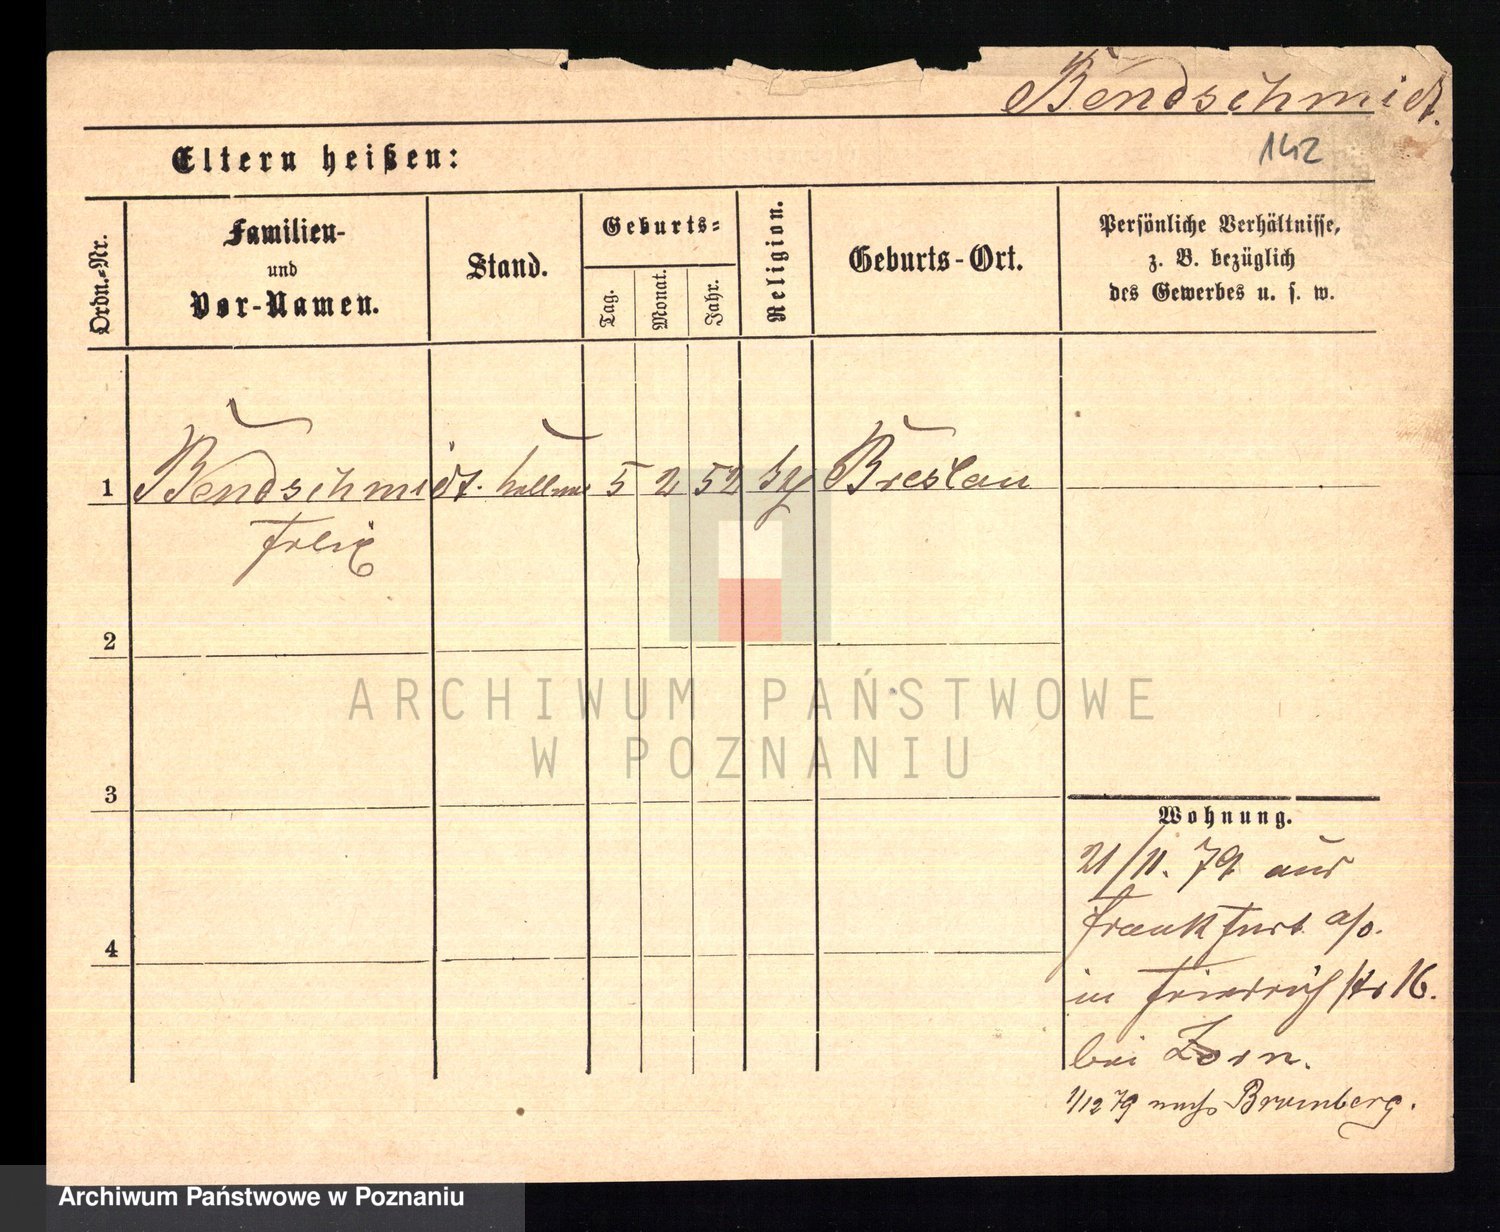 Bendschmidt.
142
Eltern heißen:
Ordn.-Nr.
Familien-
und
Vor-Namen.
Stand.
Geburts-
Tag.
Monat.
Jahr.
Religion.
Geburts-Ort.
Persönliche Verhältnisse,
z. B. bezüglich
des Gewerbes u. s. w.
1 Bendschmidt. 5 2 52 Breslau
Felix
2
3
4
Wohnung.
21/11. 79 aus
Frankfurt a/o.
in Friedrichstr 16.
bei Zorn.
1/12 79 nach Bromberg.
ARCHIWUM PAŃSTWOWE
W POZNANIU
Archiwum Państwowe w Poznaniu